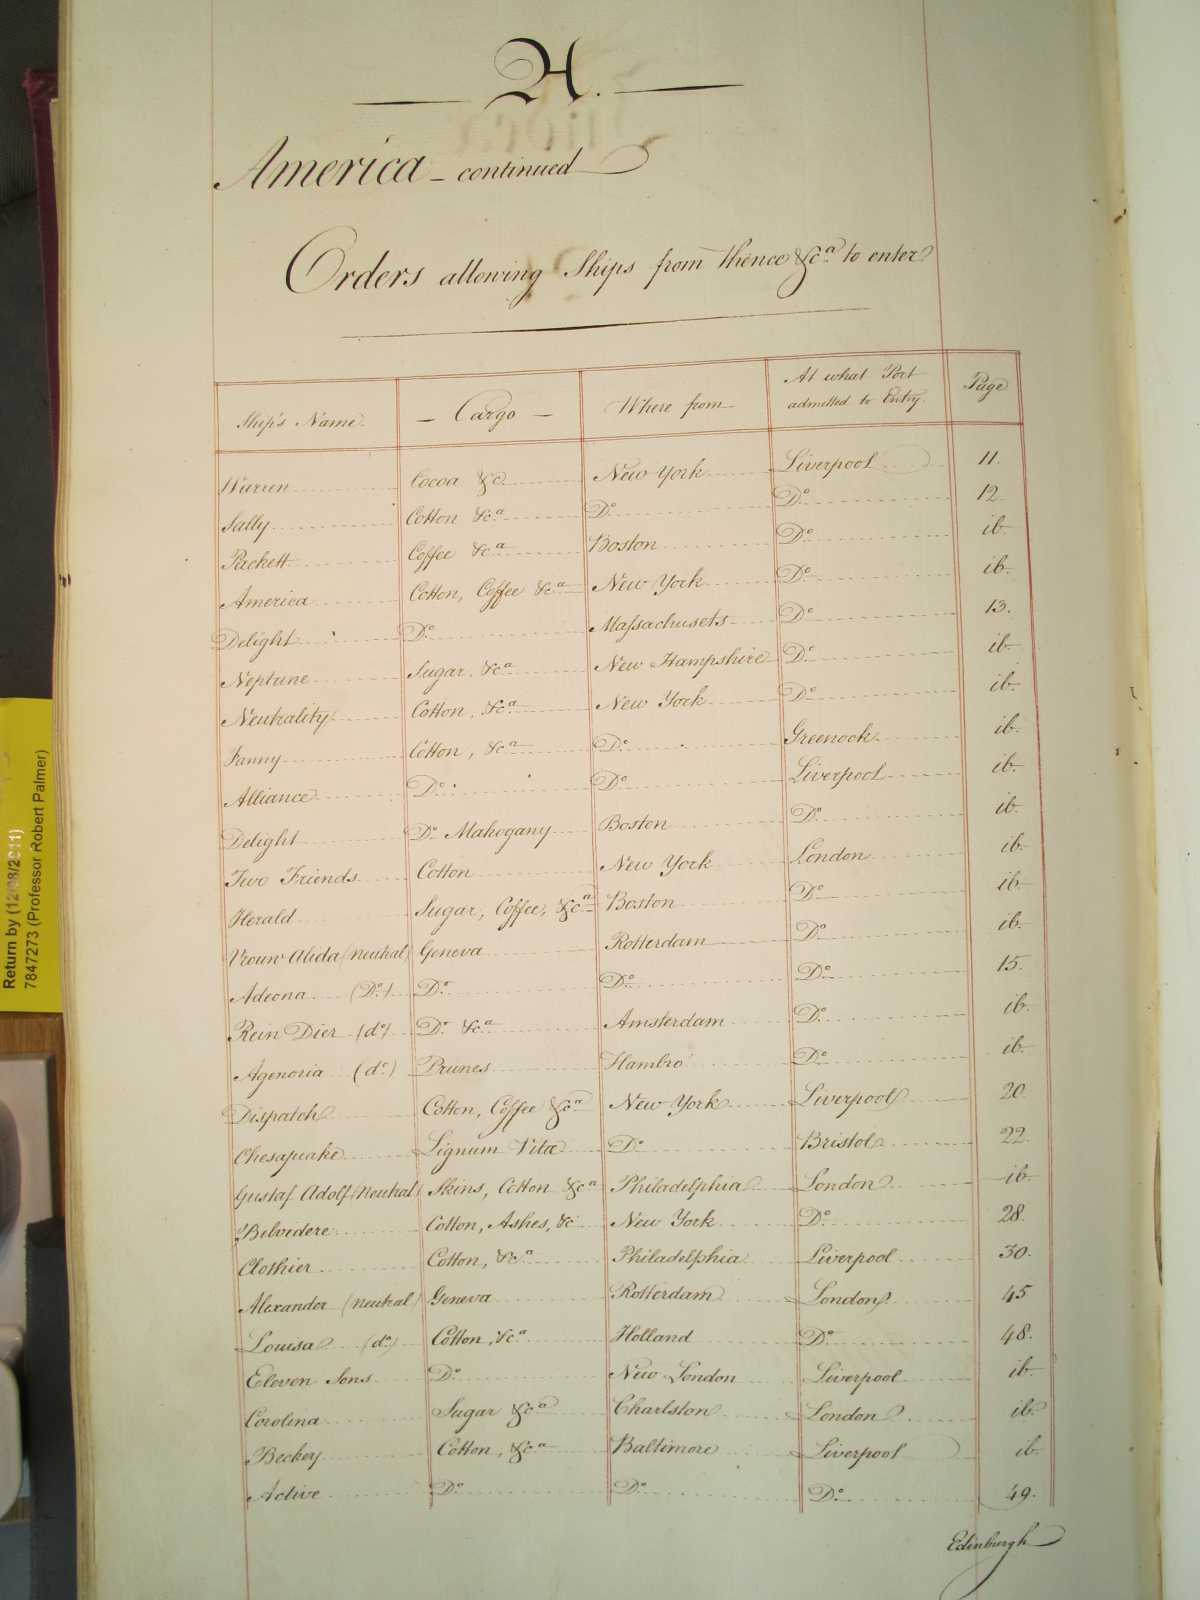 A.
America - continued
Orders allowing Ships from thence &c.a to enter
Ship's Name. - Cargo - Where from At what Port admitted to Entry. Page
Warren Cocoa &c New York Liverpool 11.
Sally Cotton &c.a Do. Do. 12.
Packett Coffee &c.a Boston Do. ib.
America Cotton, Coffee &c.a New York Do. ib.
Delight Do. Massachusets Do. 13.
Neptune Sugar, &c.a New Hampshire Do. ib.
Neutrality Cotton, &c.a New York Do. ib.
Fanny Cotton, &c.a Do. Greenock ib.
Alliance Do. Do. Liverpool ib.
Delight Do. Mahogany Boston Do. ib.
Two Friends Cotton New York London ib.
Herald Sugar, Coffee, &c.a Boston Do. ib.
Vrouw Alida (neutral) Geneva Rotterdam Do. ib.
Adeona (Do.) Do. Do. Do. 15.
Rein Dier (do.) Do. &c.a Amsterdam Do. ib.
Agenoria (do.) Prunes Hambro' Do. ib.
Dispatch Cotton, Coffee &c.a New York Liverpool 20.
Chesapeake Lignum Vitæ Do. Bristol 22.
Gustaf Adolf (Neutral) Skins, Cotton &c.a Philadelphia London ib.
Belvidere Cotton, Ashes, &c New York Do. 28.
Clothier Cotton, &c.a Philadelphia Liverpool 30.
Alexander (neutral) Geneva Rotterdam London 45
Louisa (do.) Cotton, &c.a Holland Do. 48.
Eleven Sons Do. New London Liverpool ib.
Corolina Sugar &c.a Charlston London ib.
Beckey Cotton, &c.a Baltimore Liverpool ib.
Active Do. Do. Do. 49.
Edinburgh
Return by (12/08/2011)
7847273 (Professor Robert Palmer)